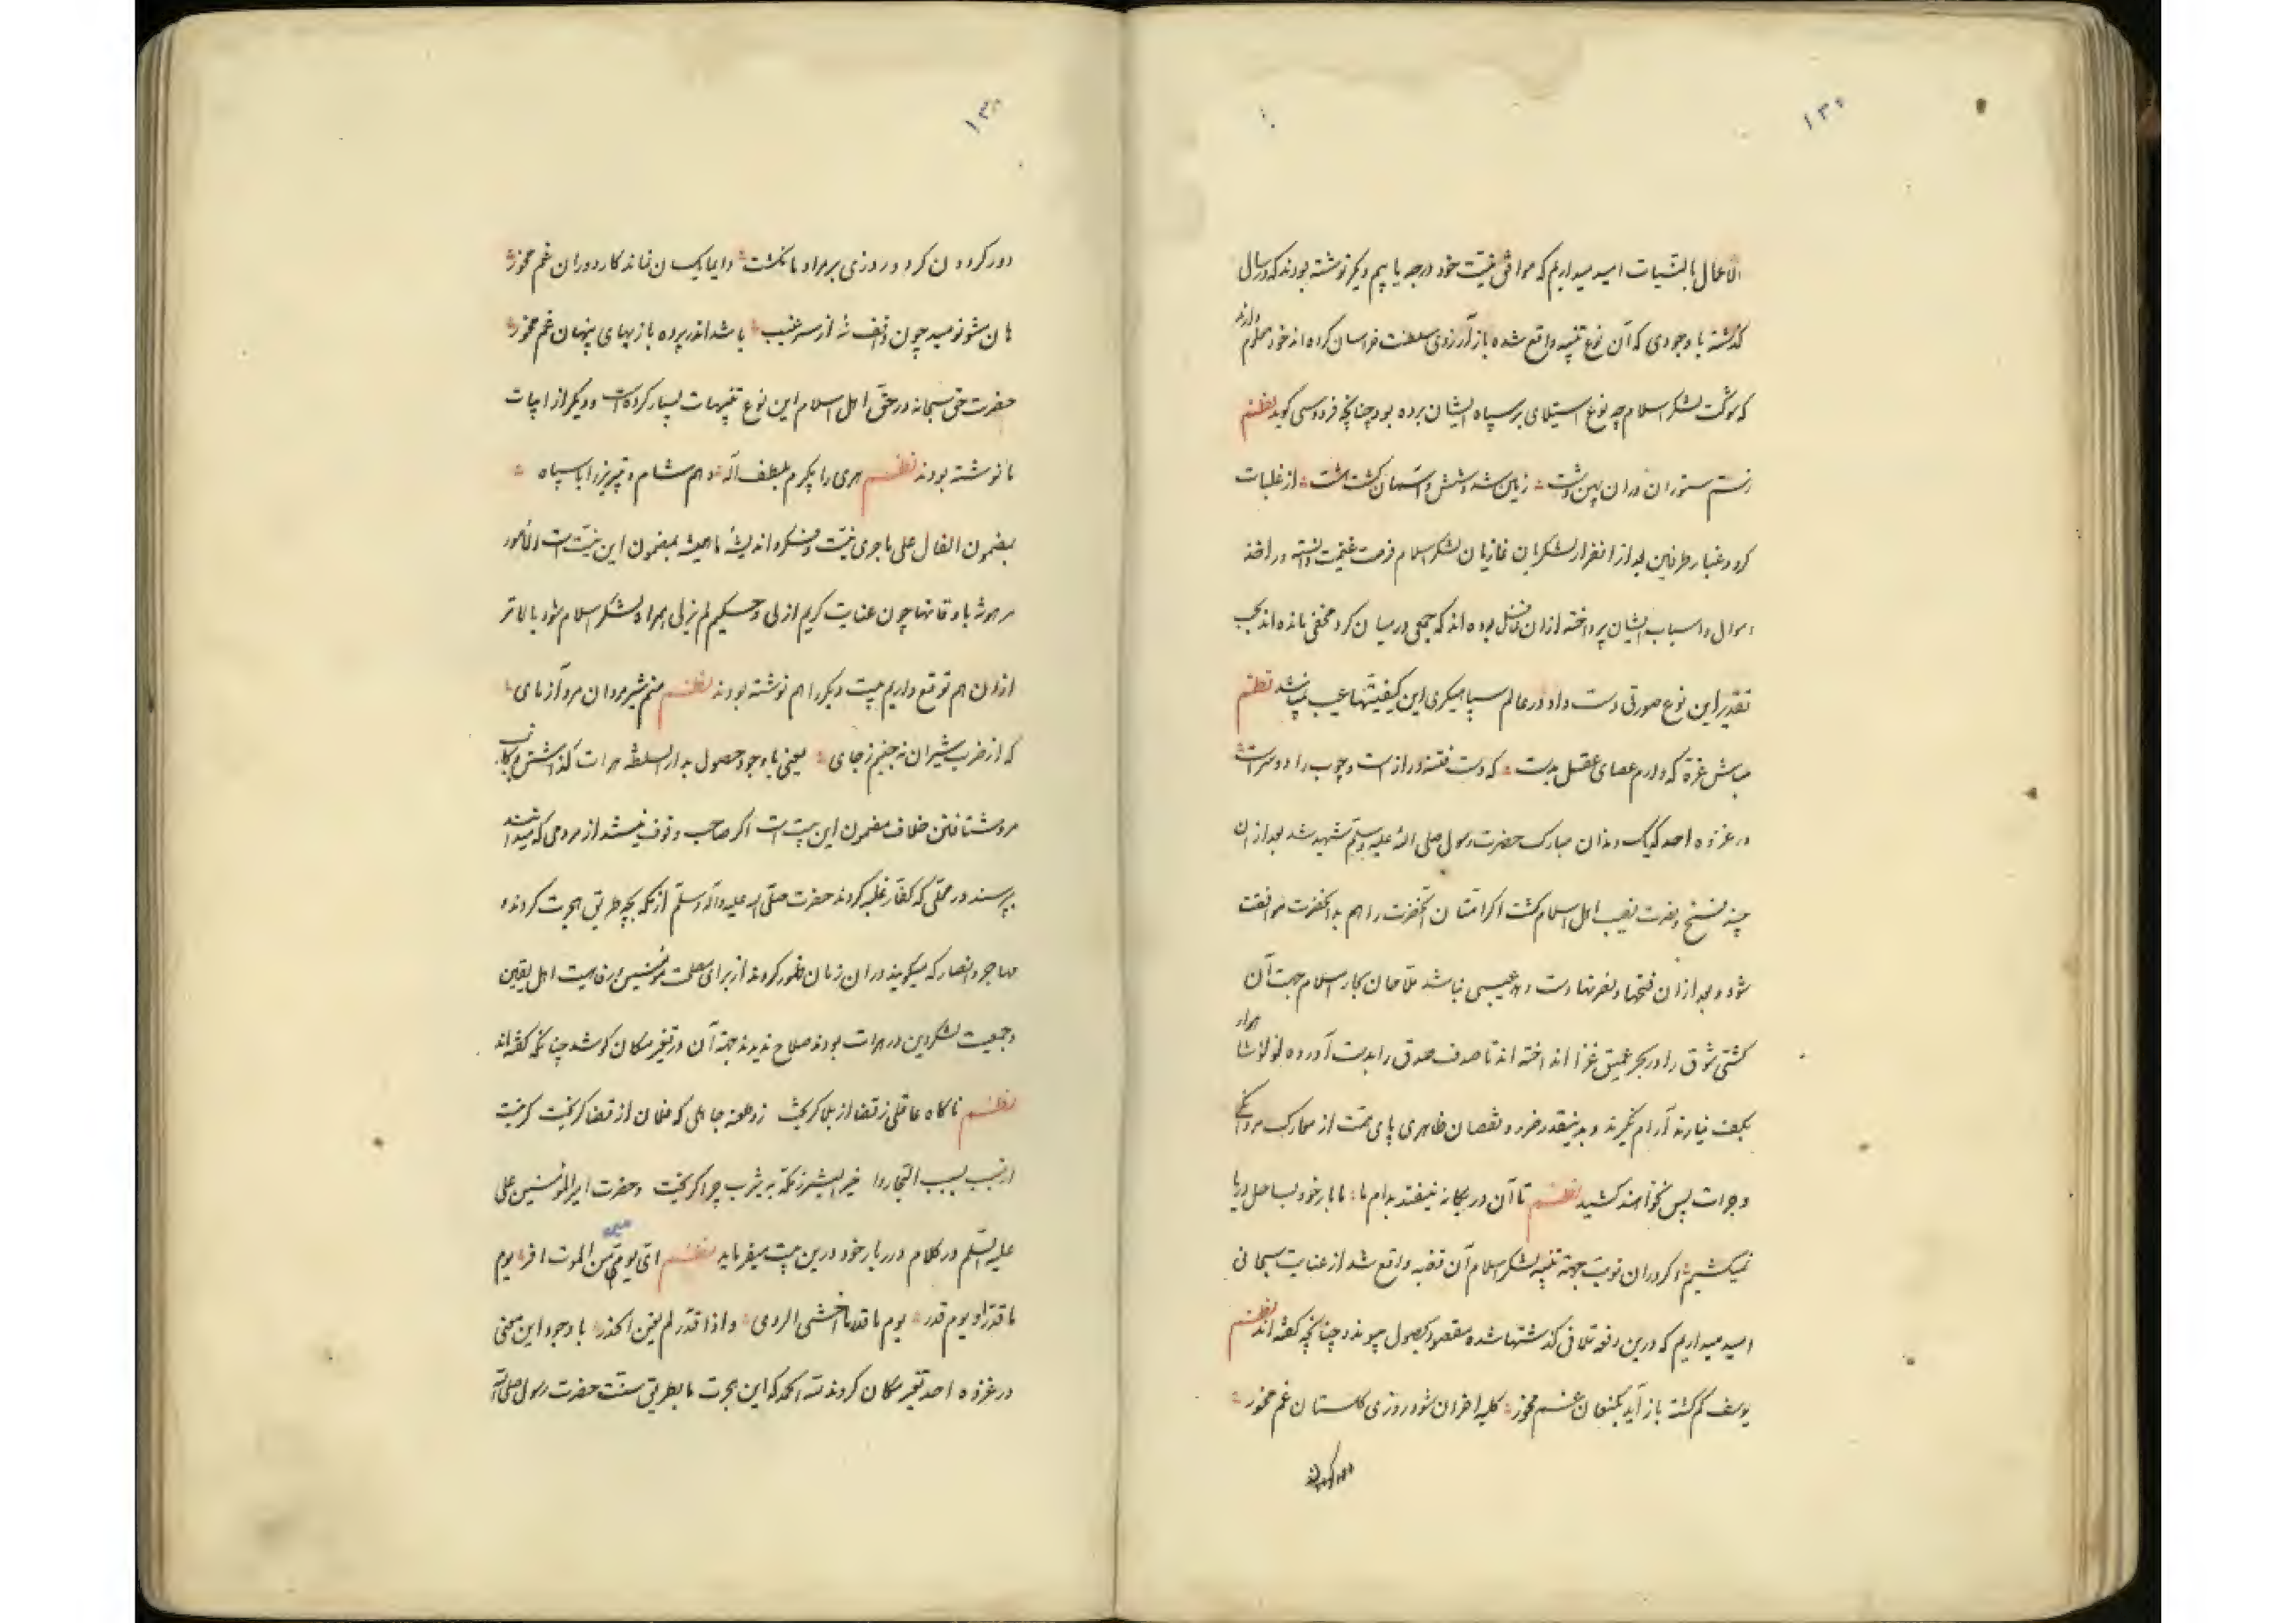 ۱۳۰
الاعمال بالنیات امید میداریم که موافق نیت خود درجه یابیم دیگر نوشته بودند که در سال
گذشته با وجودی که آن نوع تنبیه واقع شده باز آرزوی سلطنت خراسان کرده‌اند خود معلوم دارند
که شوکت لشکر اسلام چه نوع استیلای بر سپاه ایشان برده بود چنانچه فردوسی گوید نظم
ز سم ستوران دران پهن دشت زمین شد شش و آسمان گشت هشت از غلبات
گرد و غبار طرفین بعد از انفرار لشکریان غازیان لشکر اسلام فرصت غنیمت دانسته در اخذ
اموال و اسباب ایشان پرداخته ازان غافل بوده‌اند که جمعی در میان گرد مخفی مانده‌اند بحسب
تقدیر این نوع صورتی دست داد در عالم سپاهیگری این کیفیتها عیب نمیباشد نظم
مباش غره که دارم عصای عقل بدست که دست فتنه دراز است و چوب را دو سر است
در غزوه احد که یک دندان مبارک حضرت رسول صلی الله علیه وسلم شهید شد بعد از ان
چند فتح و نصرت نصیب اهل اسلام گشت اگر امتان آنحضرت را هم به آنحضرت موافقت
شود و بعد ازان فتحها و نصرتها دست دهد عیبی نباشد ملاحان بحار اسلام جهت آن
کشتی شوق را در بحر عمیق غزا انداخته‌اند تا صدف صدق را بدست آورده لولو شاهوار
بکف نیارند آرام نگیرند و بدینقدر ضرر و نقصان ظاهری پای همت از معارک مردانگی
و جرات پس نخواهند کشید نظم تا آن در یگانه نیفتد بدام ما ما بار خود بساحل دریا
نمیکشیم اگر دران نوبت جهة تنبیه لشکر اسلام آن قضیه واقع شد از عنایت سبحانی
امید میداریم که درین دفعه تلافی گذشتها شده مقصود بحصول پیوندد چنانچه گفته‌اند نظم
یوسف گم گشته باز آید بکنعان غم مخور کلبه احزان شود روزی گلستان غم مخور
دور گردون
۱۳۰
دور گردون گرد و روزی بر مراد ما نگشت دایما یکسان نماند کار دوران غم مخور
هان مشو نومید چون واقف نه از سر غیب باشد اندر پرده بازیهای پنهان غم مخور
حضرت حق سبحانه در حق اهل اسلام این نوع تنبیهات بسیار کرده است و دیگر از ابیات
ما نوشته بودند نظم هری را بگیرم بلطف اله دهم شام و تبریز را با سپاه
بمضمون الفال علی ماجری نیت و فکر و اندیشه ما همیشه بمضمون این بیت است الامور
مرهونة باوقاتها چون عنایت کریم ازلی و حکیم لم یزلی همراه لشکر اسلام شود بالاتر
ازان هم توقع داریم بیت دیگر را هم نوشته بودند نظم منم شیر مردان مرد آزمای
که از ضرب شیران نه جنبم ز جای یعنی با وجود حصول بدار السلطنه هرات گذاشتن و بجانب
مرو شتافتن خلاف مضمون این بیت است اگر صاحب وقوف نیستند از مردمی که میدانند
بپرسند در محلی که کفار غلبه کردند حضرت صلی الله علیه وآله وسلم از مکه بچه طریق هجرت کردند و
مهاجر و انصار که میگویند دران زمان ظهور کردند از برای مصلحت مومنین و رفاهیت اهل یقین
و جمعیت لشکر دین در هرات بودند صلاح ندیدند جهة آن در تغیر مکان کوشد چنانکه گفته‌اند
نظم ناگاه عاقلی ز قضا از بلا گریخت زد طعنه جاهلی که فلان از قضا گریخت گر نیست
از سبب بسبب التجا روا خیر البشر ز مکه به یثرب چرا گریخت و حضرت امیر المومنین علی
علیه السلم در کلام درربار خود درین بیت میفرماید نظم ای یومی من الموت افر یوم
ما قدر او یوم قدر یوم ما قدر ما اخشی الردی و اذا قدر لم یغن الحذر با وجود این معنی
در غزوه احد تغیر مکان کردند لله الحمد که این هجرت ما بطریق سنت حضرت رسول صلی الله